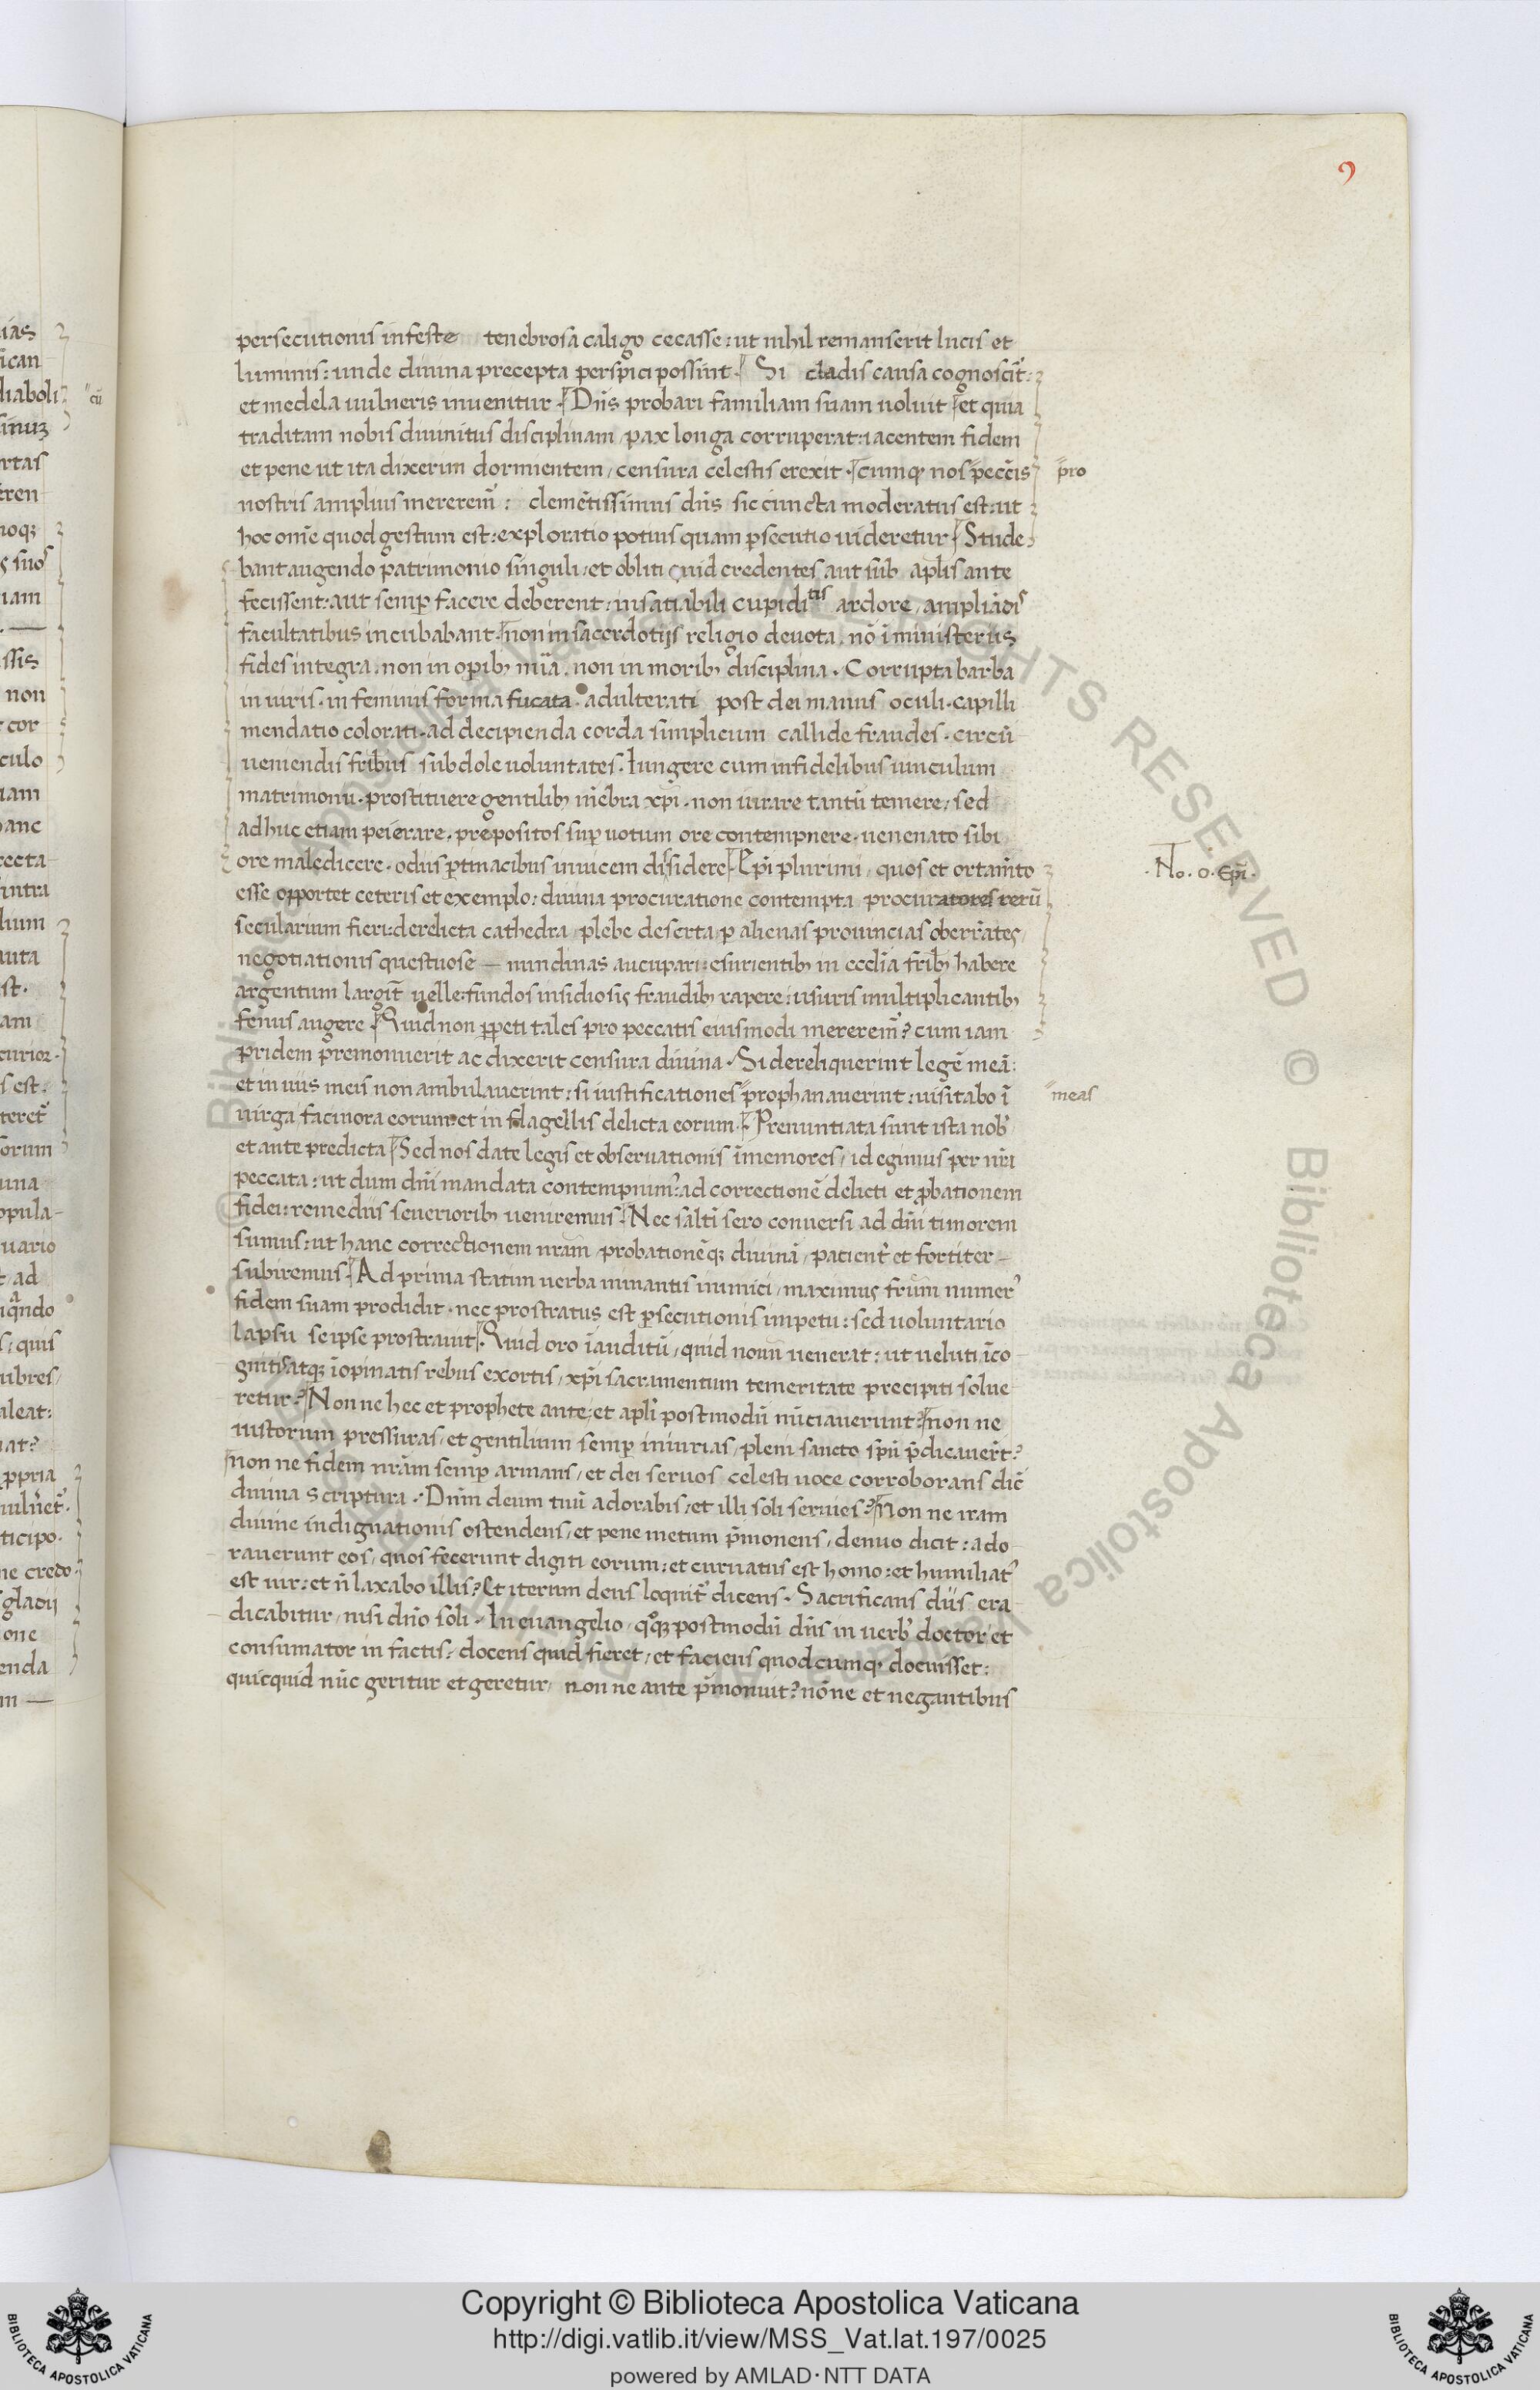 9
persecutionis infeste tenebrosa caligo cecasse: ut nihil remanserit lucis et
luminis: unde diuina precepta perspici possint. Si cladis causa cognoscit̄:
et medela uulneris inuenitur. Dn̄s probari familiam suam uoluit et quia
traditam nobis diuinitus disciplinam, pax longa corruperat: iacentem fidem
et pene ut ita dixerim dormientem, censura celestis erexit. cumq; nos pecc̄is
pro
nostris amplius mererem̄: clemētissimus dn̄s sic cuncta moderatus est: ut
hoc om̄e quod gestum est: exploratio potius quam ꝑsecutio uideretur. Stude
bant augendo patrimonio singuli, et obliti quid credentes aut sub apl̄is ante
fecissent: aut semꝑ facere deberent: insatiabili cupiditis ardore, ampliādis
facultatibus incubabant. non in sacerdotijs religio deuota. nō ī ministeriis
fides integra. non in oꝑib; mīa. non in morib; disciplina. Corrupta barba
in uiris. in feminis forma fucata. adulterati post dei manus oculi. capilli
mendatio colorati. ad decipienda corda simplicium callide fraudes. circū
ueniendis frībus subdole uoluntates. Iungere cum infidelibus uinculum
matrimonii. prostituere gentilib; mēbra xp̄i. non iurare tantū temere, sed
adhuc etiam peierare. prepositos suꝑ uotum ore contempnere. uenenato sibi
ore maledicere. odiis ꝑtinacibus inuicem dissidere. Ep̄i plurimi, quos et ortam̄to
No. o. Ep̄i.
esse opportet ceteris et exemplo: diuina procuratione contempta procuratores rerū
secularium fieri: derelicta cathedra, plebe deserta, ꝑ alienas prouincias oberrātes,
negotiationis questuose — nundinas aucupari: esurientib; in eccl̄ia frīb; habere
argentum largit̄ uelle: fundos insidiosis fraudib; rapere: usuris multiplicantib;
fenus augere. Quid non ꝑpeti tales pro peccatis eiusmodi mererem̄? cum iam
pridem premonuerit ac dixerit censura diuina. Si dereliquerint legē meā:
et in uiis meis non ambulauerint: si iustificationes prophanauerint: uisitabo ī
meas
uirga facinora eorum: et in flagellis delicta eorum. Prenuntiata sunt ista nob̄
et ante predicta. Sed nos date legis et obseruationis īmemores, id egimus per nr̄i
peccata: ut dum dn̄i mandata contempnim̄: ad correctionē delicti et ꝓbationem
fidei: remediis seueriorib; ueniremus. Nec salt̄i sero conuersi ad dn̄i timorem
sumus: ut hanc correctionem nr̄am, probationēq; diuinā, patient̄ et fortiter —
subiremus. Ad prima statim uerba minantis inimici, maximus fr̄um numer̄
fidem suam prodidit. nec prostratus est ꝑsecutionis impetu: sed uoluntario
lapsu se ipse prostrauit. Quid oro īauditū, quid nouū uenerat: ut ueluti īco
gnitis atq; īopinatis rebus exortis, xp̄i sacramentum temeritate precipiti solue
retur? Non ne hec et prophete ante, et apl̄i postmodū nūtiauerunt? non ne
iustorum pressuras, et gentilium semꝑ iniurias, pleni sancto sp̄u p̄dicauer̄t?
non ne fidem nr̄am semꝑ armans, et dei seruos celesti uoce corroborans dic̄
diuina scriptura. Dn̄m deum tuū adorabis, et illi soli seruies? Non ne iram
diuine indignationis ostendens, et pene metum p̄monens, denuo dicit: ado
rauerunt eos, quos fecerunt digiti eorum: et curuatus est homo: et humiliat̄
est uir: et n̄ laxabo illis? Et iterum deus loquit̄ dicens. Sacrificans diis era
dicabitur, nisi dn̄o soli. In euangelio, qoq; postmodū dn̄s in uerb̄ doctor et
consumator in factis, docens quid fieret, et faciens quodcumq; docuisset:
quicquid nūc geritur et geretur, non ne ante p̄monuit? nōne et negantibus
Copyright © Biblioteca Apostolica Vaticana
http://digi.vatlib.it/view/MSS_Vat.lat.197/0025
powered by AMLAD・NTT DATA